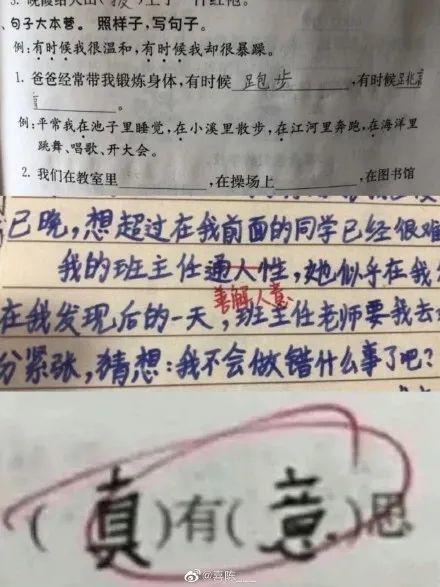 3. 晚霞给火山(披)上了一件红袍。
句子大本营。 照样子,写句子。
例:有时候我很温和,有时候我却很暴躁。
1. 爸爸经常带我锻炼身体,有时候 足包步 ,有时候足北京
。
例:平常我在池子里睡觉,在小溪里散步,在江河里奔跑,在海洋里
跳舞、唱歌、开大会。
2. 我们在教室里 ,在操场上 ,在图书馆
已晚,想超过在我前面的同学已经很难
我的班主任通人性,她似乎在我
善解人意
在我发现后的一天,班主任老师要我去
分紧张,猜想:我不会做错什么事了吧?
(真)有(意)思
@喜陈__